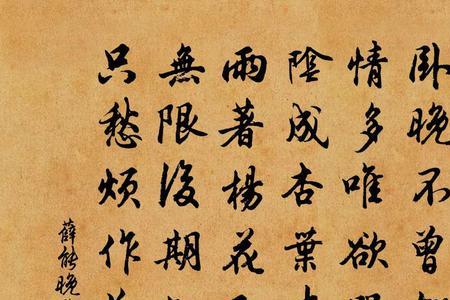 卧晚不曾
情多唯欲
陰成杏葉
雨著楊花
無限後期
只愁煩作
薛能晚